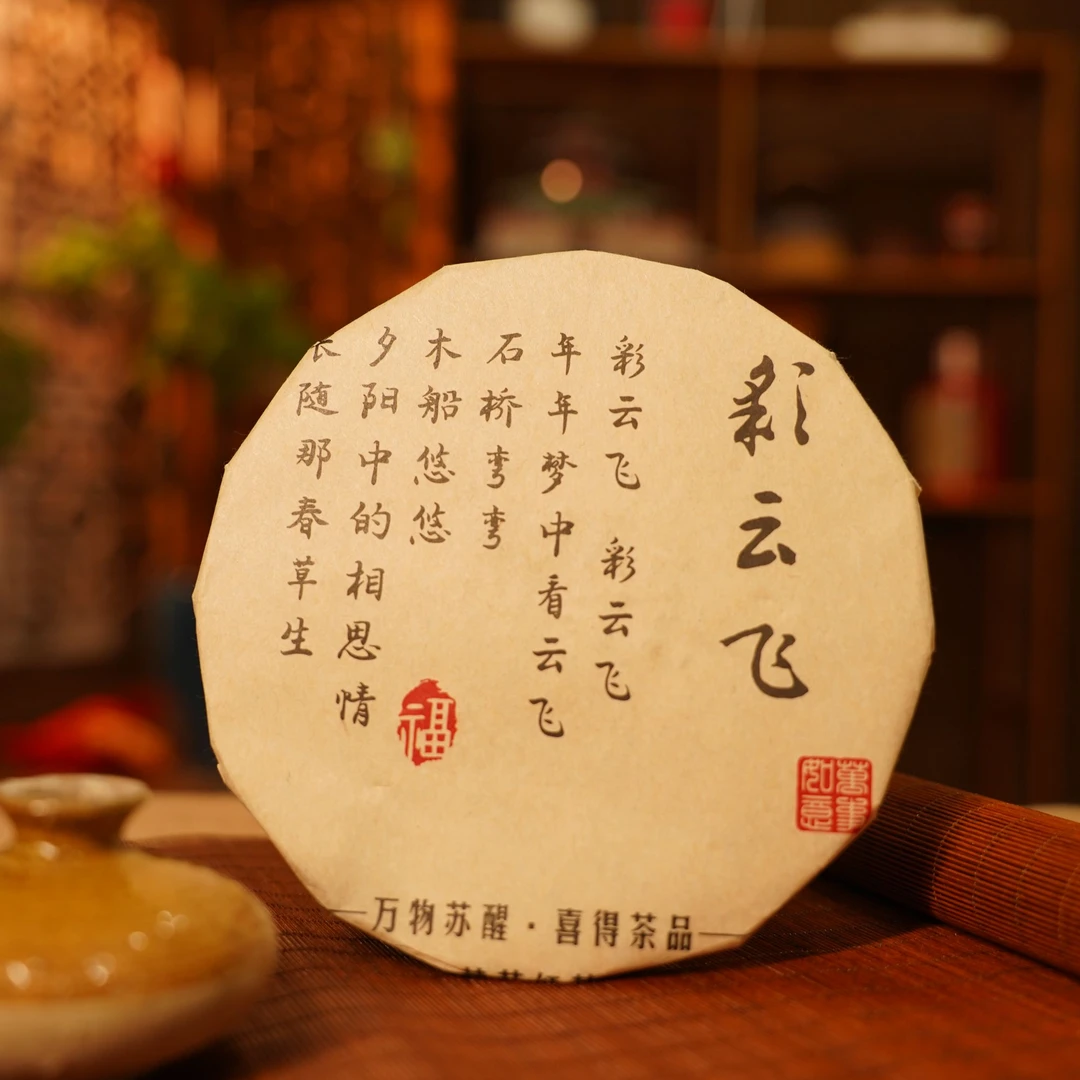 彩云飞
彩云飞 彩云飞
年年梦中看云飞
石桥弯弯
木船悠悠
夕阳中的相思情
长随那春草生
福
萬事如意
万物苏醒·喜得茶品